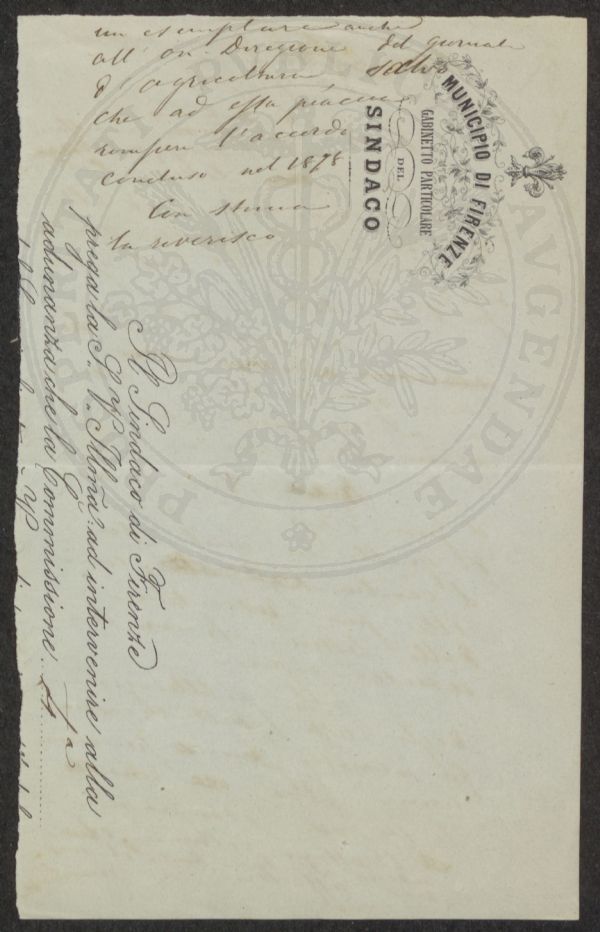 un esemplare anche
all' on. Direzione del giornale
d' agricoltura salvo
che ad essa piaccia
rompere l'accordo
concluso nel 1878
Con stima
la riverisco
MUNICIPIO DI FIRENZE
GABINETTO PARTICOLARE
DEL
SINDACO
Il Sindaco di Firenze
prega la S. V. Illma: ad intervenire alla
adunanza che la Commissione
PROSPERITATI PUBLICAE AUGENDAE